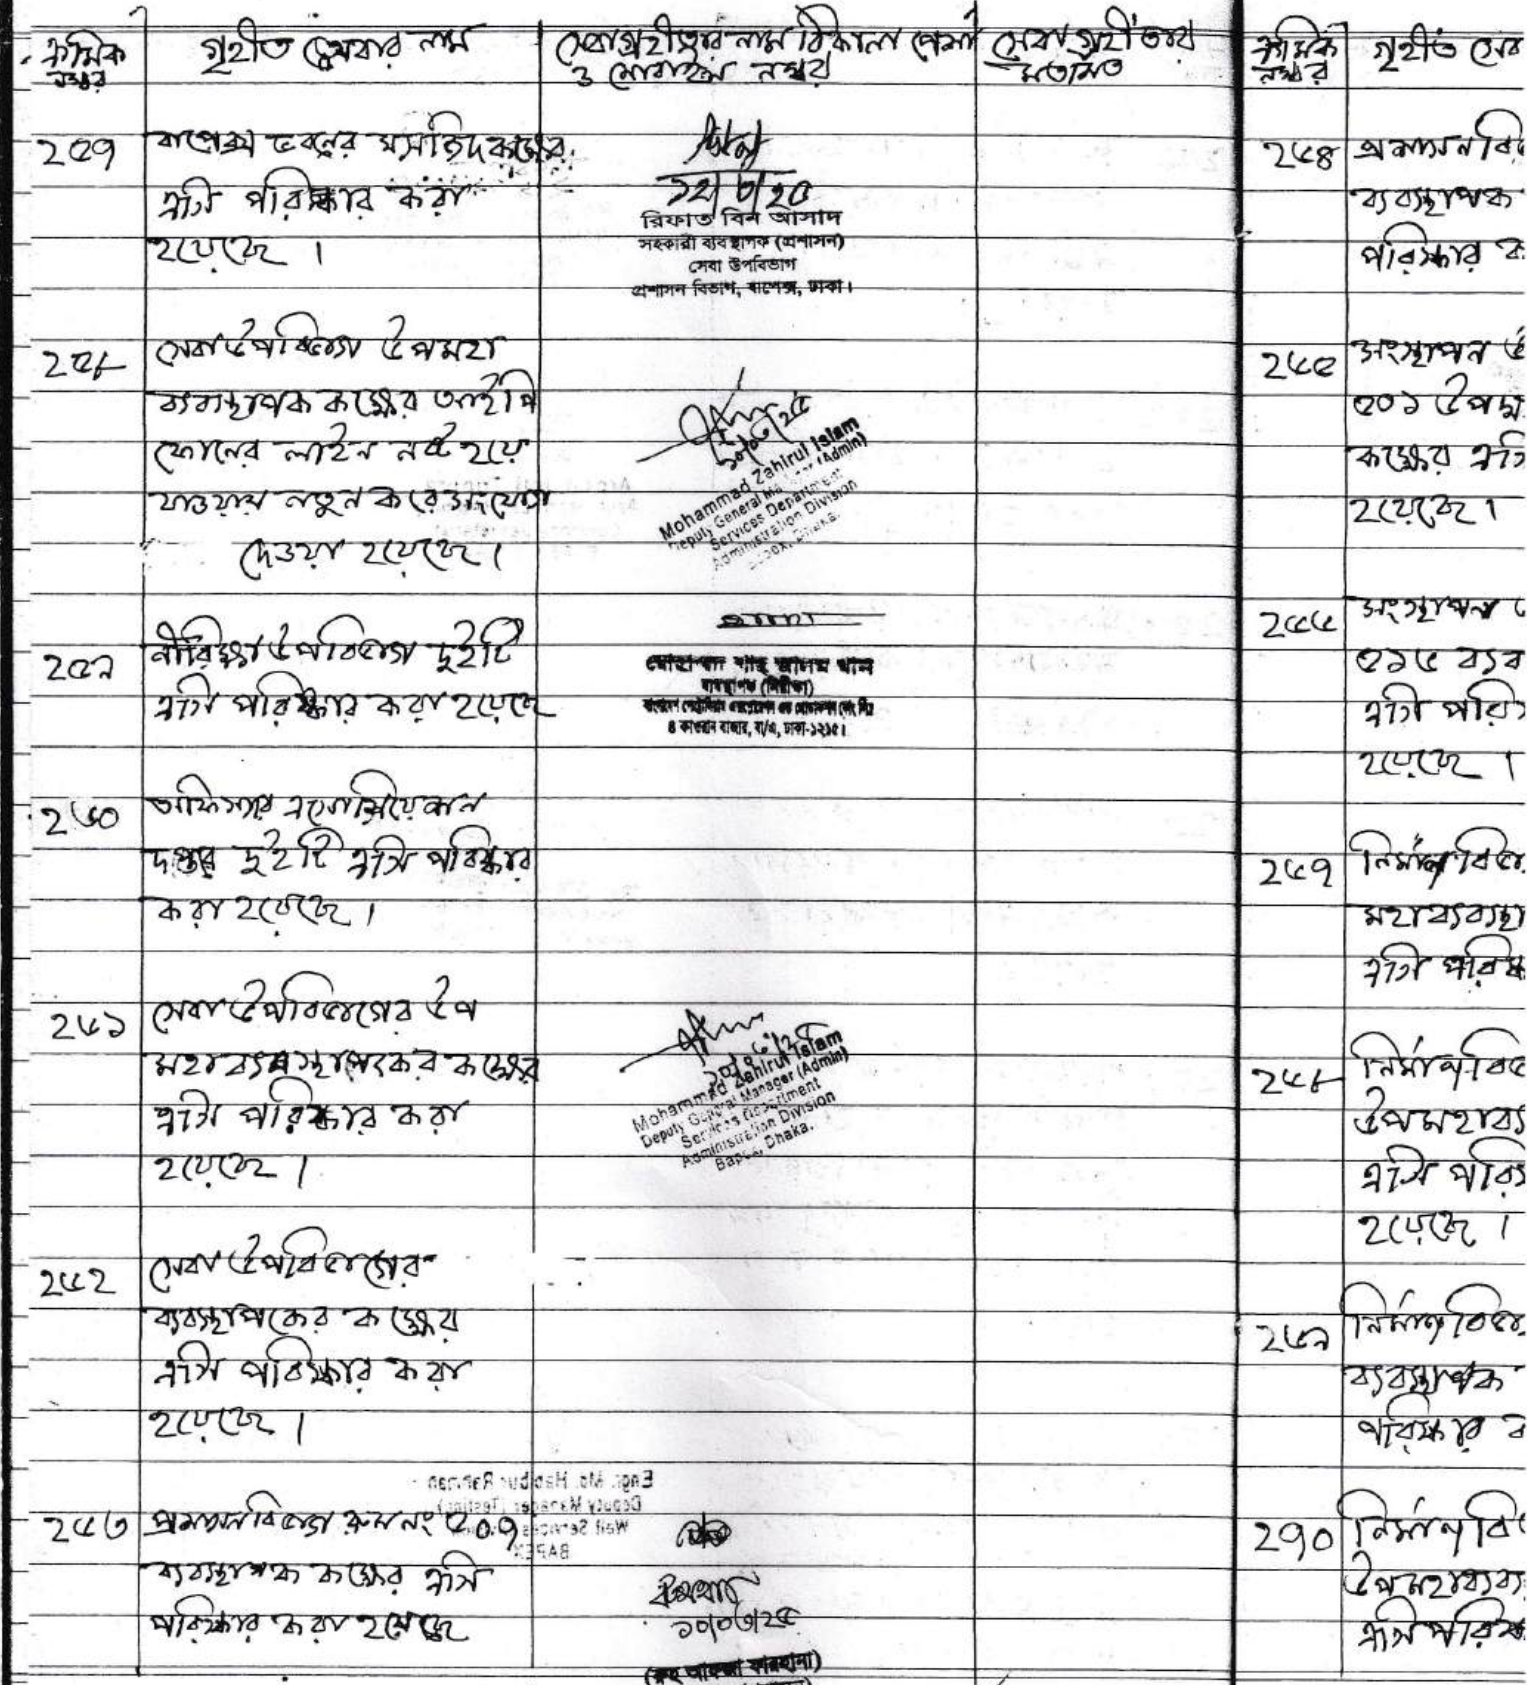 ক্রমিক নম্বর
গৃহীত সেবার নাম
সেবাগ্রহীতার নাম ঠিকানা পেশা
ও মোবাইল নম্বর
সেবা গ্রহীতার
মতামত
২৫৭
বাপেক্স ভবনের মসজিদ কক্ষের
এসি পরিস্কার করা
হয়েছে।
১২/৩/২৫
রিফাত বিন আসাদ
সহকারী ব্যবস্থাপক (প্রশাসন)
সেবা উপবিভাগ
প্রশাসন বিভাগ, বাপেক্স, ঢাকা।
২৫৮
সেবা উপবিভাগ উপমহা
ব্যবস্থাপক কক্ষের আইপি
ফোনের লাইন নষ্ট হয়ে
যাওয়ায় নতুন করে সংযোগ
দেওয়া হয়েছে।
Mohammad Zahirul Islam
Deputy General Manager (Admin)
Services Department
Administration Division
Bapex, Dhaka.
২৫৯
নীরিক্ষা উপবিভাগ দুইটি
এসি পরিস্কার করা হয়েছে
মোহাম্মদ শাহ্ আলম খান
ব্যবস্থাপক (নিরীক্ষা)
৪ কাওরান বাজার, বা/এ, ঢাকা-১২১৫।
২৬০
অফিসার এসোসিয়েশন
দপ্তর দুইটি এসি পরিস্কার
করা হয়েছে।
২৬১
সেবা উপবিভাগের উপ
মহাব্যবস্থাপকের কক্ষের
এসি পরিস্কার করা
হয়েছে।
Mohammad Zahirul Islam
Deputy General Manager (Admin)
Services Department
Administration Division
Bapex, Dhaka.
২৬২
সেবা উপবিভাগের
ব্যবস্থাপকের কক্ষের
এসি পরিস্কার করা
হয়েছে।
Engr. Md. Habibur Rahman
Deputy Manager (Testing)
Well Services
BAPEX
২৬৩
প্রশাসন বিভাগ রুম নং ৫০৭
ব্যবস্থাপক কক্ষের এসি
পরিস্কার করা হয়েছে
১০/০৩/২৫
ক্রমিক নম্বর
গৃহীত সেব
২৬৪
প্রশাসন বি
ব্যবস্থাপক
পরিস্কার ক
২৬৫
সংস্থাপন উ
৫০১ উপম
কক্ষের এসি
হয়েছে।
২৬৬
সংস্থাপন
৫১৬ ব্যব
এসি পরি
হয়েছে।
২৬৭
নির্মাণ বিভা
মহাব্যবস্থা
এসি পরিস্ক
২৬৮
নির্মাণ বিভ
উপমহাব্য
এসি পরিস
হয়েছে।
২৬৯
নির্মাণ বিভা
ব্যবস্থাপক
পরিস্কার ক
২৭০
নির্মাণ বি
উপমহাব্যব
এসি পরিস্ক